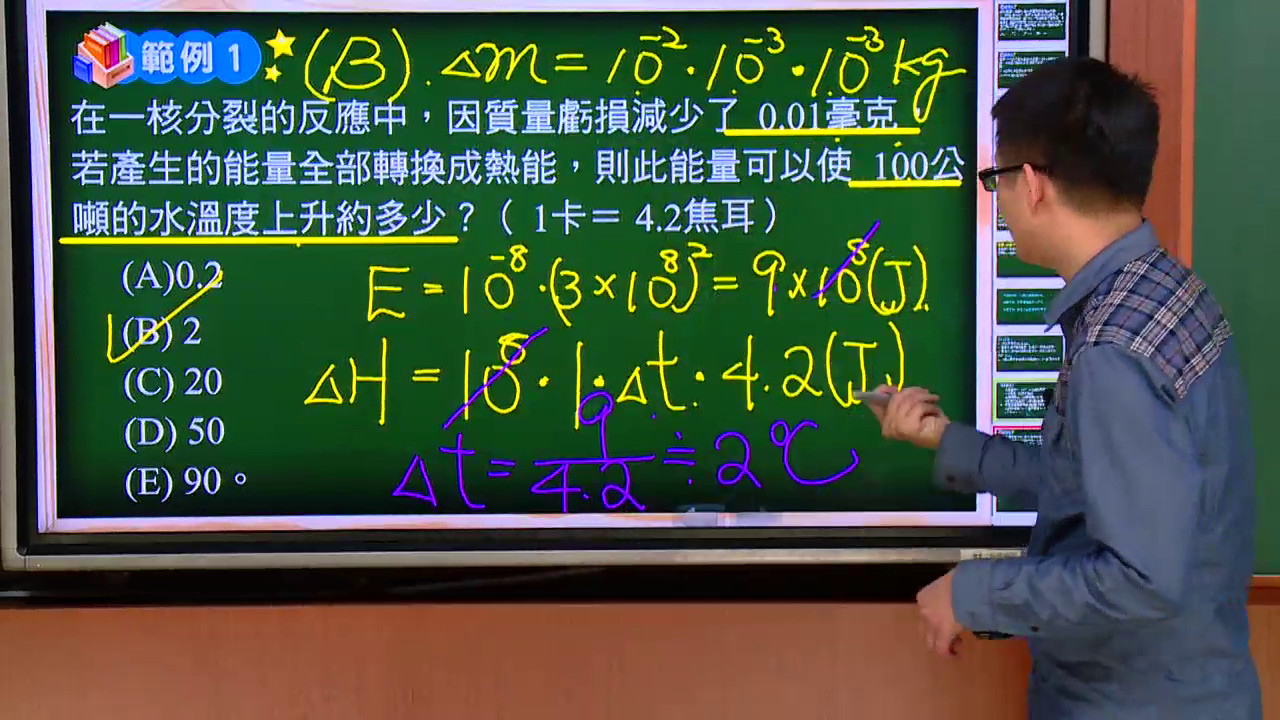 範例 1 (B). Δm = 10⁻²·10⁻³·10⁻³kg
在一核分裂的反應中，因質量虧損減少了 0.01毫克
若產生的能量全部轉換成熱能，則此能量可以使 100公
噸的水溫度上升約多少？（ 1卡＝ 4.2焦耳）
(A)0.2
E = 10⁻⁸·(3×10⁸)² = 9×10⁸(J).
(B) 2
ΔH = 10⁸·1·Δt·4.2(J)
(C) 20
(D) 50
Δt = 9/4.2 ≑ 2℃
(E) 90。